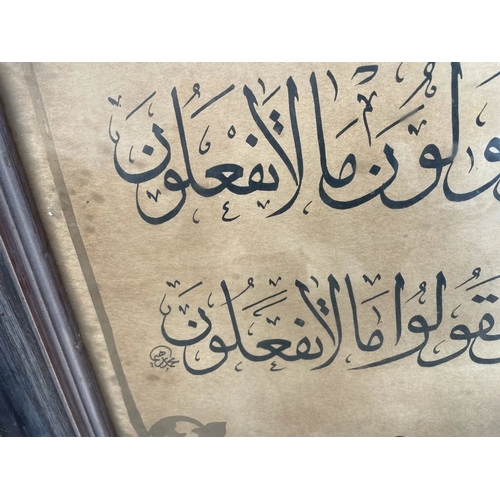 ـقُولُونَ مَا لَا تَفْعَلُونَ
تَقُولُوا مَا لَا تَفْعَلُونَ